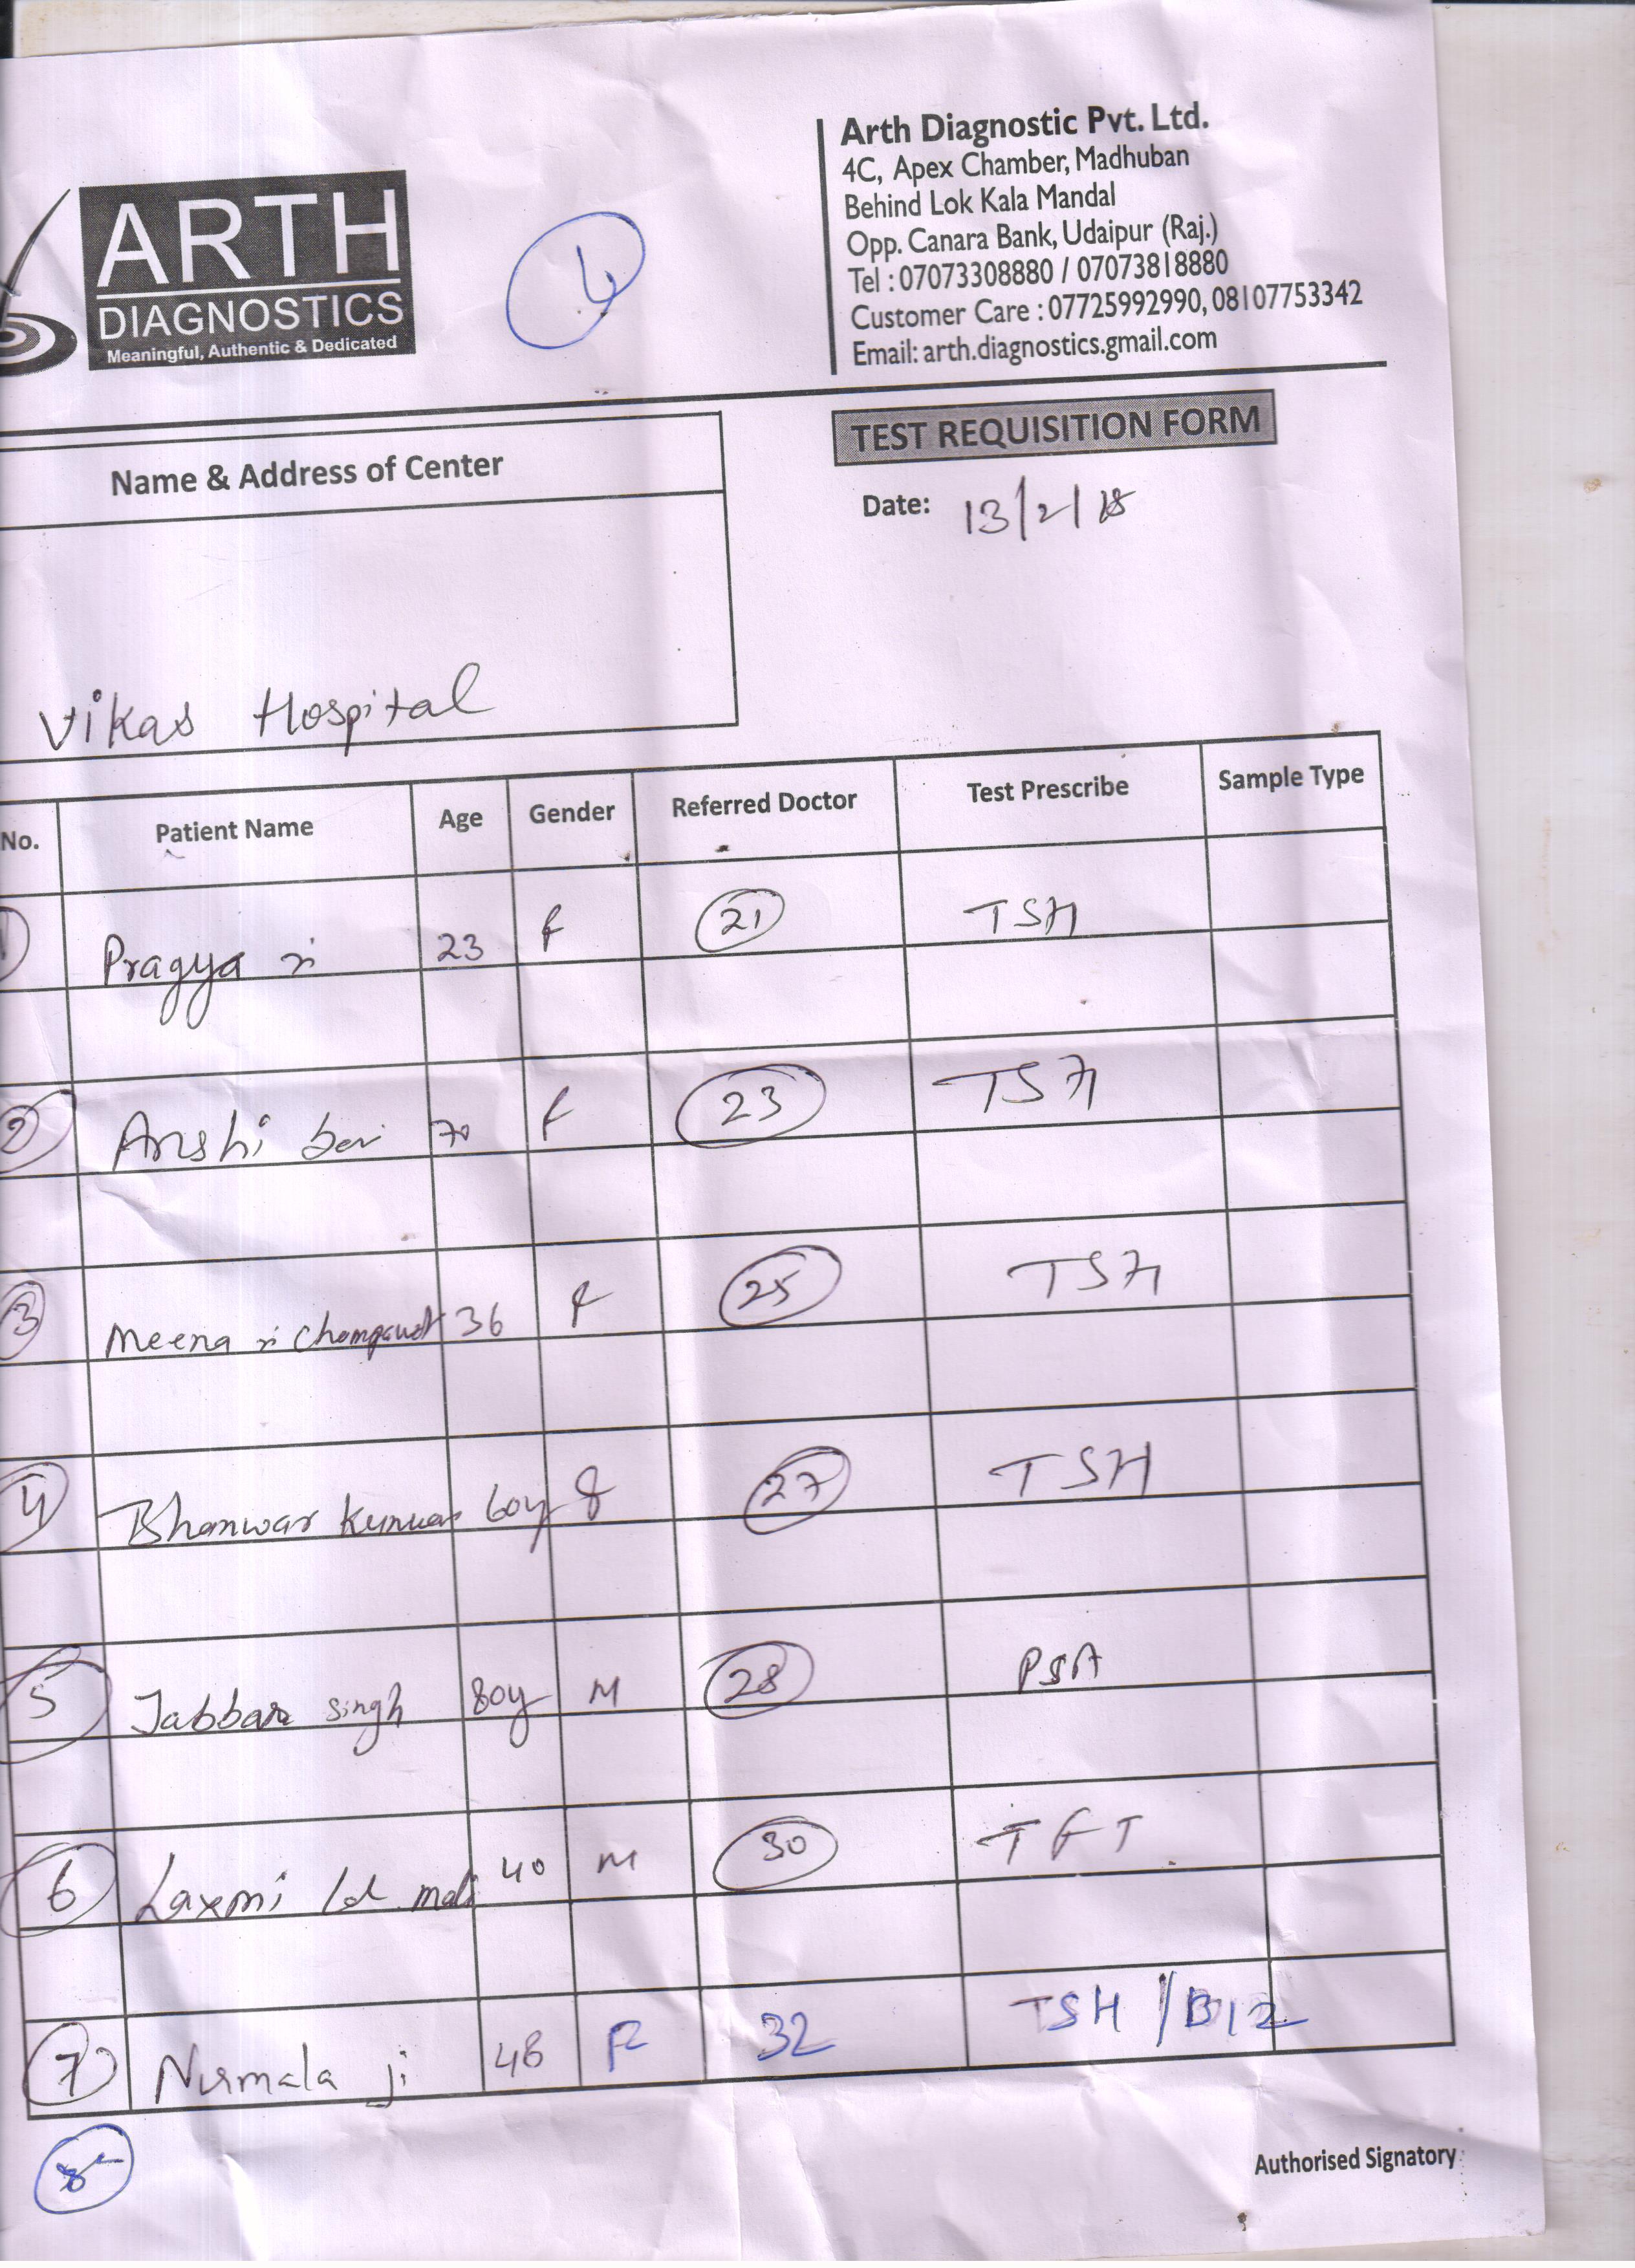 ARTH
DIAGNOSTICS
Meaningful, Authentic & Dedicated
Arth Diagnostic Pvt. Ltd.
4C, Apex Chamber, Madhuban
Behind Lok Kala Mandal
Opp. Canara Bank, Udaipur (Raj.)
Tel : 07073308880 / 07073818880
Customer Care : 07725992990, 08107753342
Email: arth.diagnostics.gmail.com
TEST REQUISITION FORM
Name & Address of Center
Date: 13/2/18
Vikas Hospital
No. Patient Name Age Gender Referred Doctor Test Prescribe Sample Type
1 Pragya 23 F 21 TSH
2 Arshi bai 70 F 23 TSH
3 Meena Champawat 36 F 25 TSH
4 Bhanwar Kunwar 60y F 27 TSH
5 Jabbar Singh 80y M 28 PSA
6 Laxmi lal mali 40 M 30 TFT
7 Nirmala ji 48 F 32 TSH / B12
Authorised Signatory